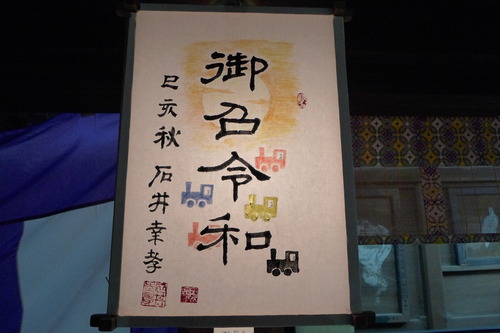 御召令和
己亥秋 石井幸孝